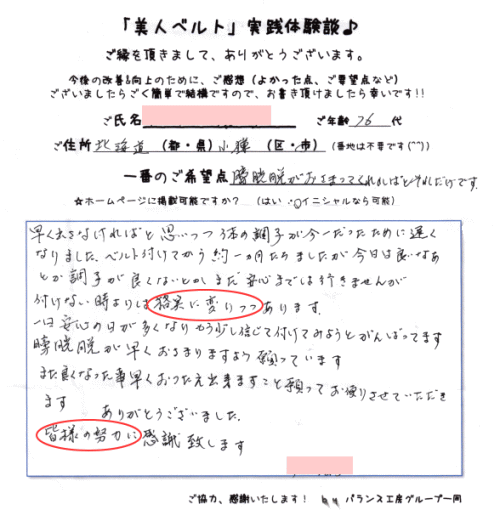 「美人ベルト」実践体験談♪
ご縁を頂きまして、ありがとうございます。
今後の改善&向上のために、ご感想（よかった点、ご要望点など）
ございましたらごく簡単で結構ですので、お書き頂けましたら幸いです!!
ご氏名 ご年齢 76 代
ご住所 北海道 （都・県） 小樽 （区・市） （番地は不要です(^^)）
一番のご希望点 膀胱脱がおさまってくれればとそれだけです。
☆ホームページに掲載可能ですか？ （はい ・○イニシャルなら可能）
早く出さなければと思いつつ 体の調子が今一だったために遅く
なりました、ベルト付けてから約一ヵ月たちましたが今日は良いなあ
とか調子が良くないとかまだ安心までは行きませんが
付けない時よりは 確実に変りつつあります.
一日安心の日が多くなりもう少し信じて付けてみようとがんばってます
膀胱脱が早くおさまりますよう願っています
また良くなった事早くおつたえ出来ますこと願ってお便りさせていただき
ます ありがとうございました.
皆様の努力に感謝致します
ご協力、感謝いたします！ by バランス工房グループ一同